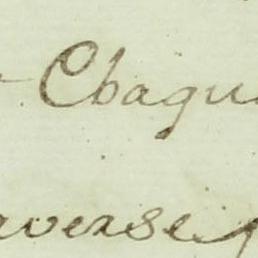 Chaqu
averse